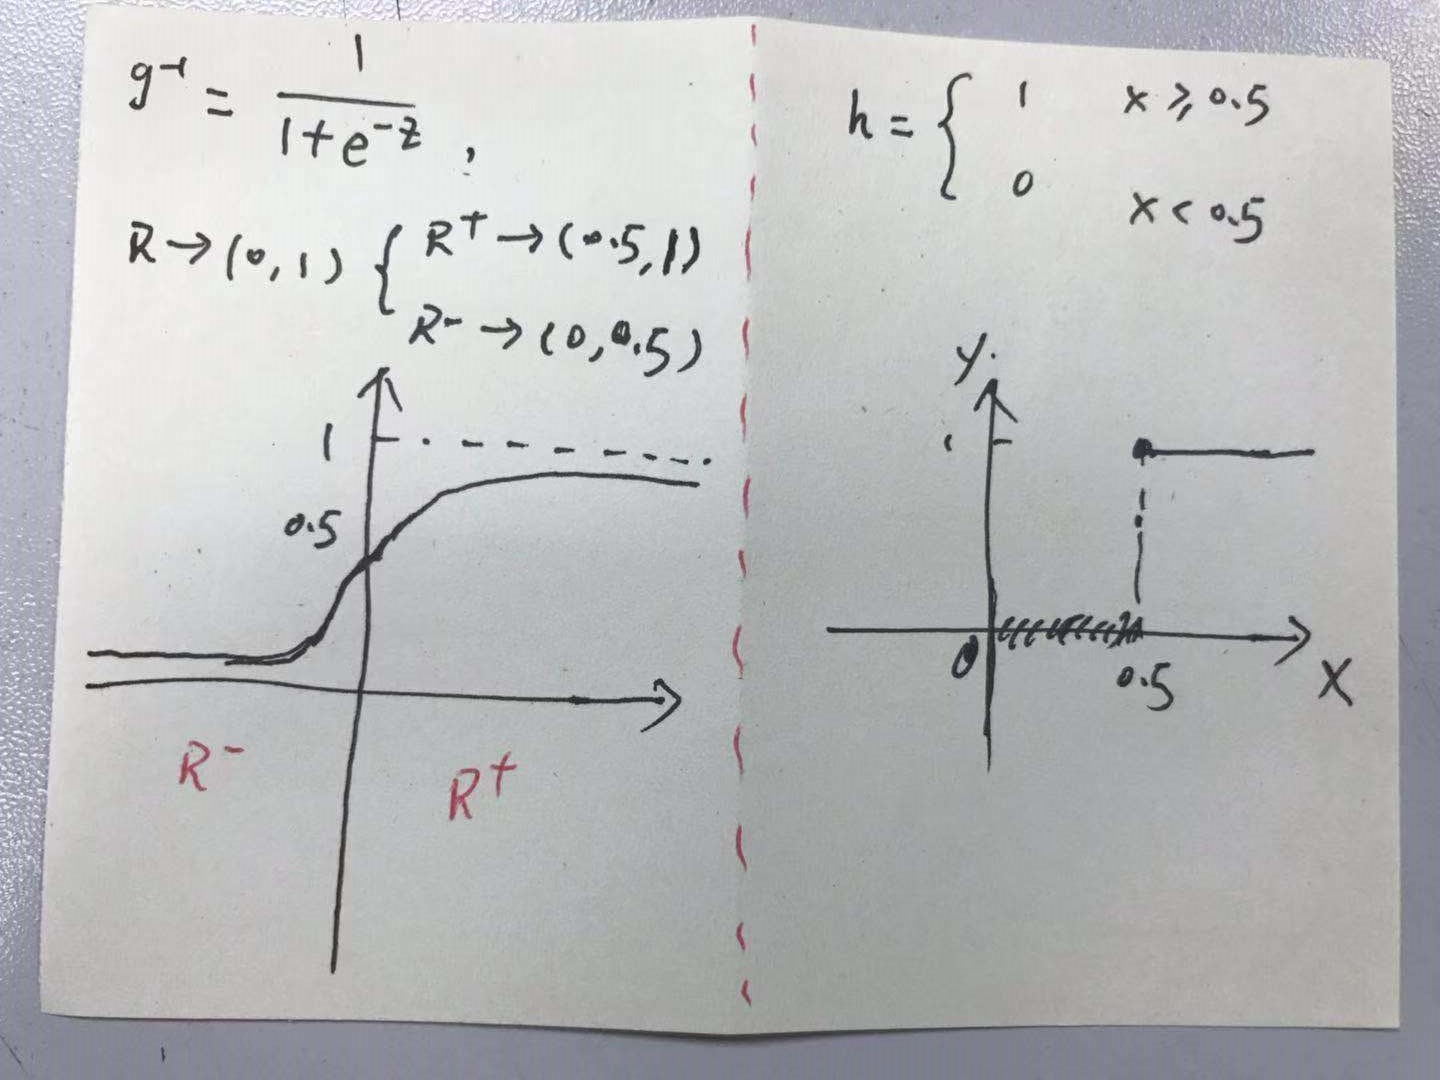 g⁻¹ = 1/(1+e^{-z}),
R → (0,1) { R⁺ → (0.5,1)
R⁻ → (0,0.5)
1
0.5
R⁻
R⁺
h = { 1 x ≥ 0.5
0 x < 0.5
y
1
0
0.5
x